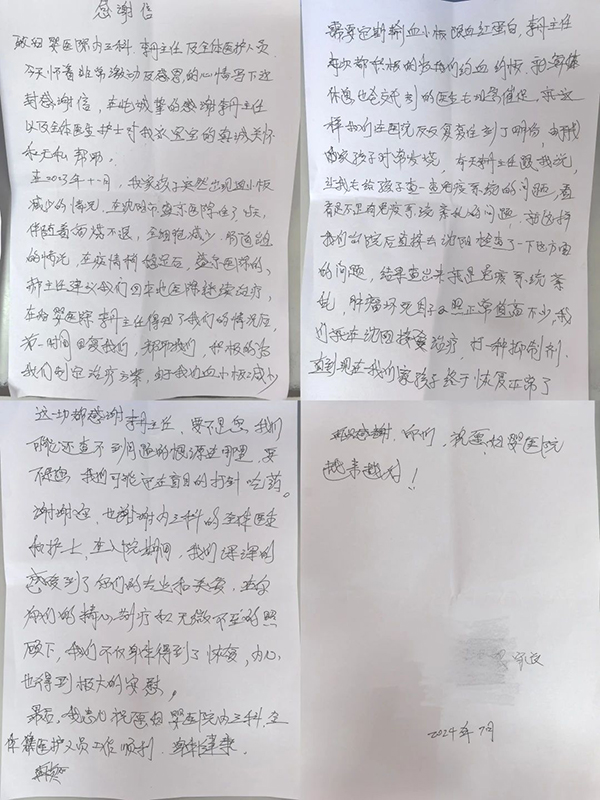 感谢信
致妇婴医院内三科 李丹主任及全体医护人员
今天怀着非常激动及感恩的心情写下这
封感谢信，在此诚挚的感谢李丹主任
以及全体医生护士对我这宝宝的真诚关怀
和无私帮助。
在2023年十一月，我家孩子突然出现血小板
减少的情况，在沈阳市盛京医院住了
伴随着高烧不退，减少
的情况，在病情稍稳定后，盛京医院的
主任建议我们回本地医院继续治疗，
在妇婴医院李丹主任得知了我们的情况后，
第一时间回复我们，帮助我们，积极的给
我们制定治疗方案，由于我们血小板减少
需要定期输血小板跟血红蛋白，李丹主任
每次都积极的
休息也会交代别的医生去观察催促，就这
样我们在医院反反复复住到了明
孩子时常发烧，有天李主任跟我说，
让我去给孩子查一查免疫系统的问题，看
看是不是有免疫系统紊乱的问题，就这样
我们出院后直接去沈阳检查了一下这方面
的问题，结果查出来就是免疫系统紊
乱，肿瘤坏死因子比照正常值高不少，我
们现在沈阳接受治疗，打一种抑制剂。
直到现在我们家孩子终于恢复正常了
这一切都感谢李丹主任，要不是您，我们
可能还查不到问题的根源在哪里，要
不是您，我们可能还在盲目的打针吃药。
谢谢您，也谢谢内三科的全体医生
和护士，在入院期间，我们深深的
感受到了你们的专业和关爱，在
你们的精心治疗和无微不至的照
顾下，我们不仅身体得到了恢复，内心
也得到极大的安慰，
最后，我衷心祝愿妇婴医院内三科全
体医护人员工作顺利，身体健康
再次感谢 你们，祝愿妇婴医院
越来越好！
家长
2024年7月